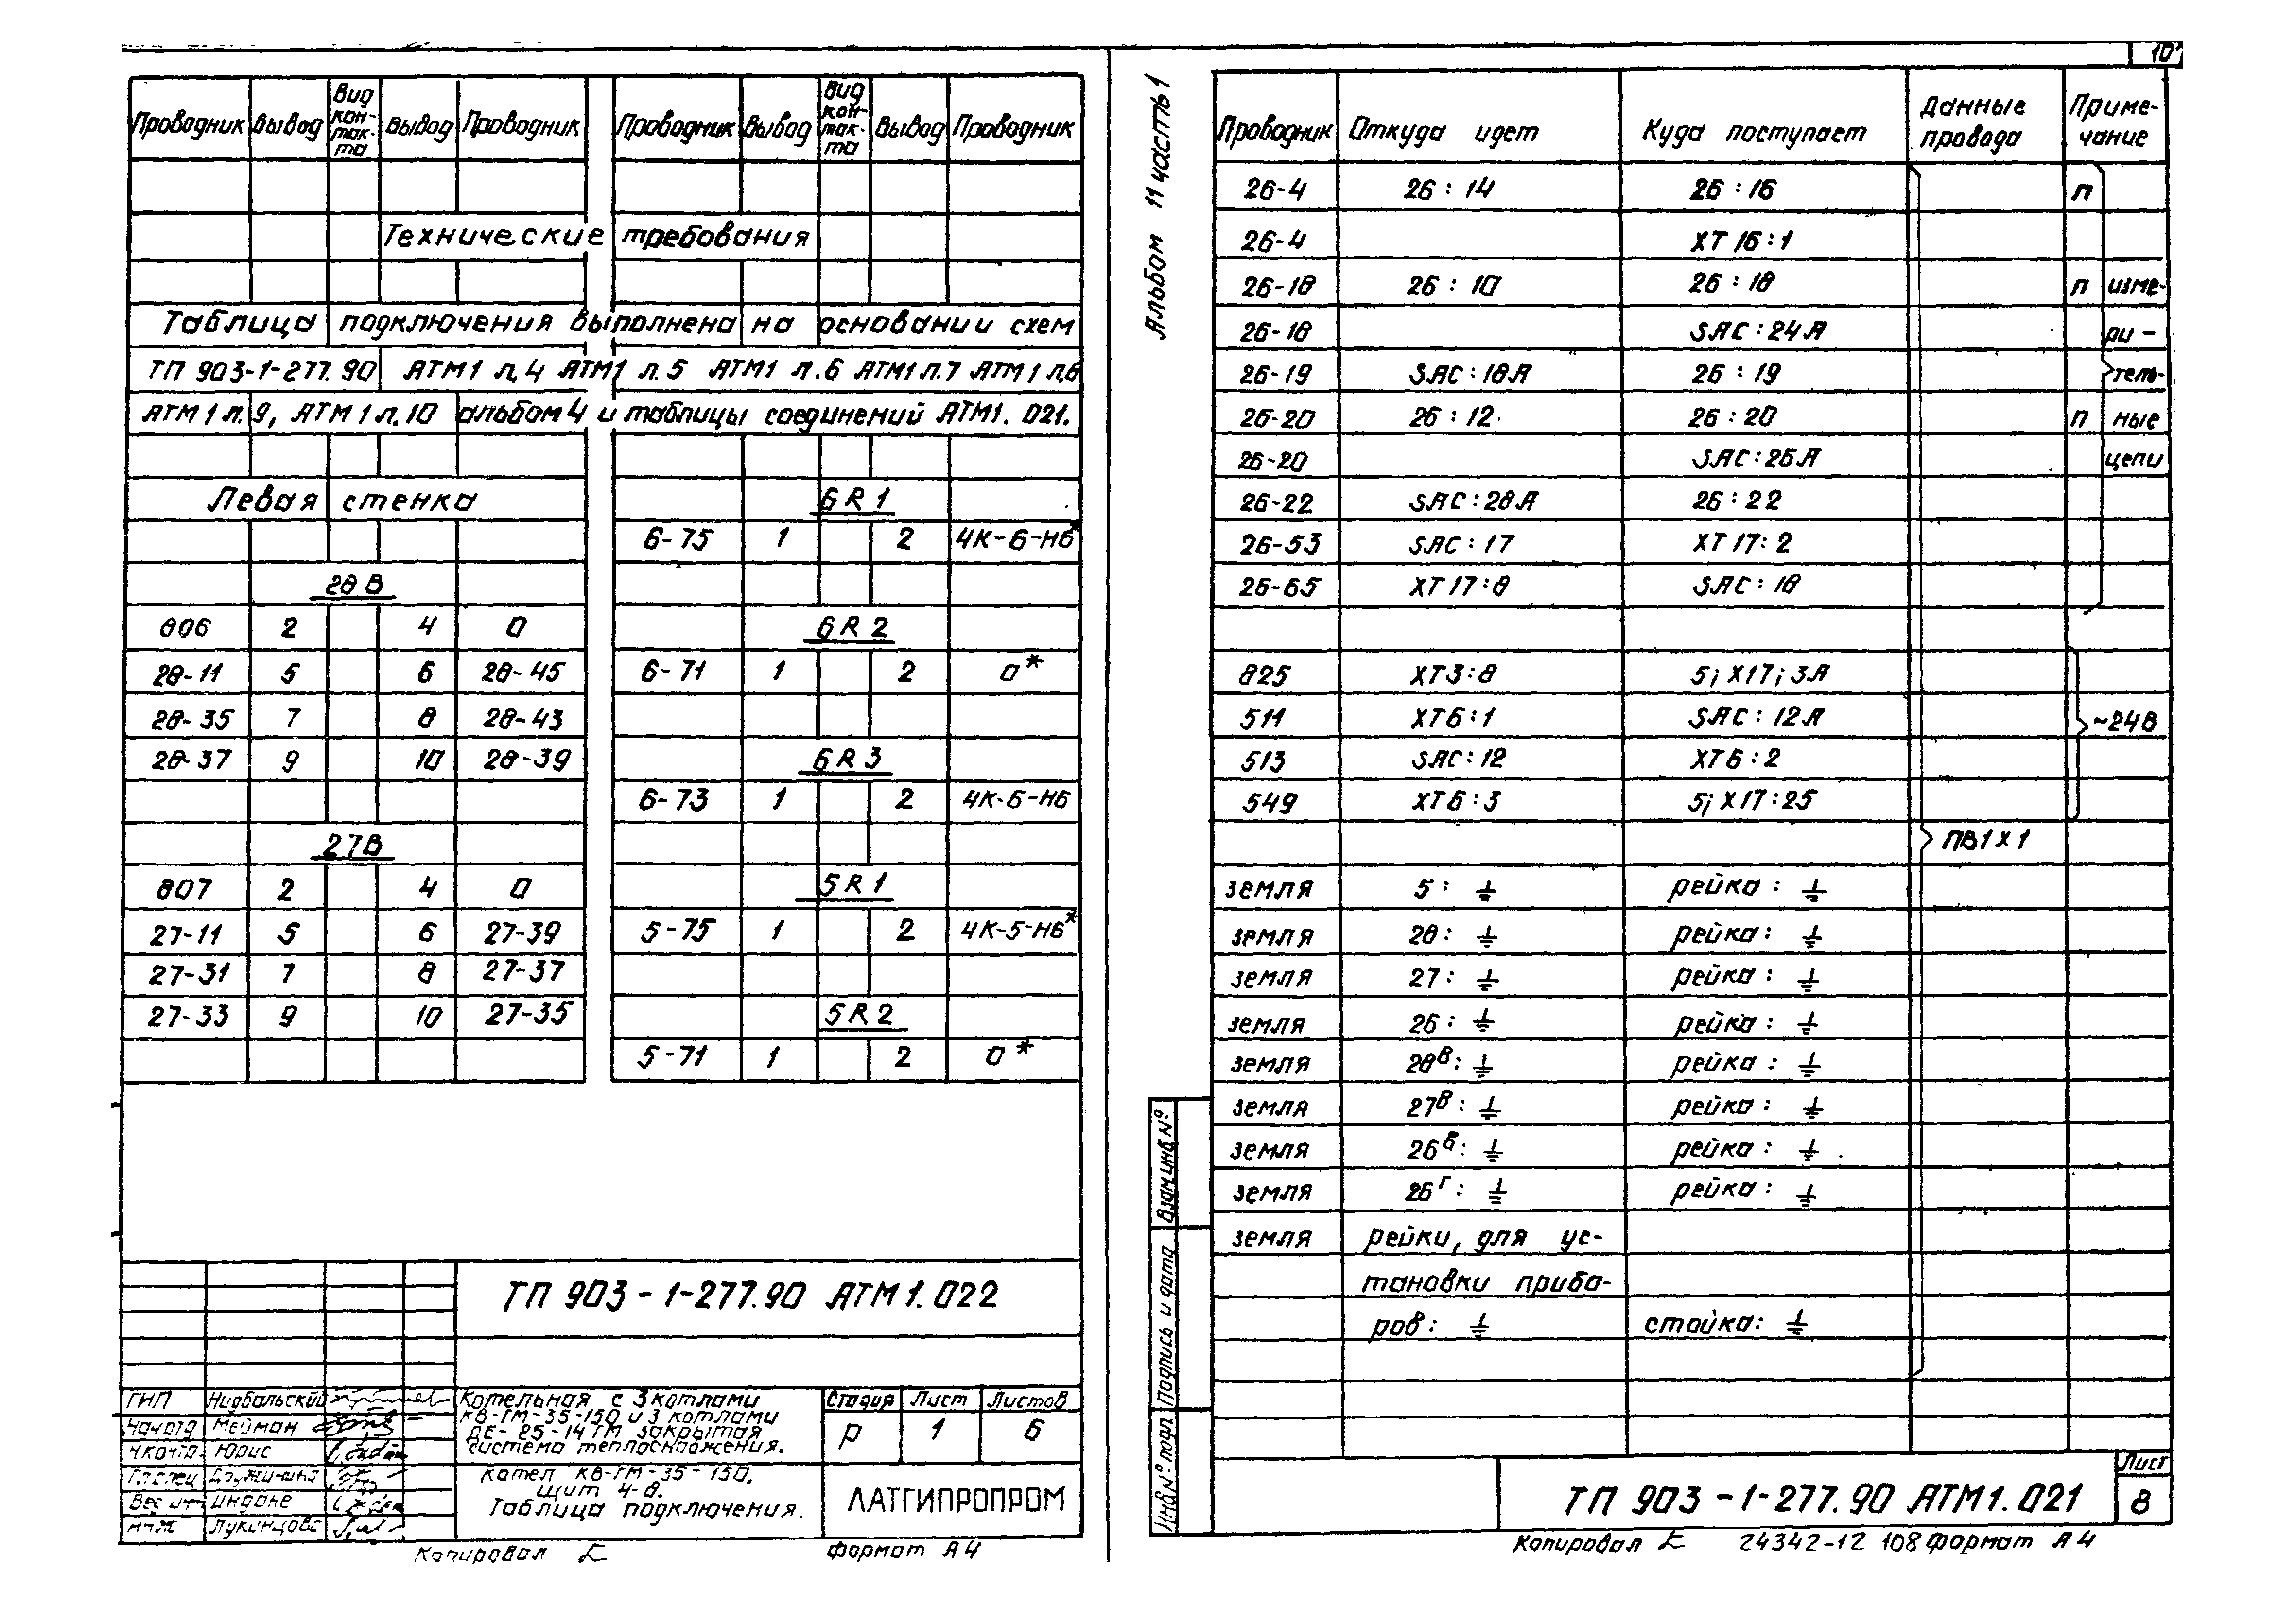 Проводник Вывод Вид контакта Вывод Проводник Проводник Вывод Вид контакта Вывод Проводник
Технические требования
Таблица подключения выполнена на основании схем
ТП 903-1-277.90 АТМ1 л.4 АТМ1 л.5 АТМ1 л.6 АТМ1 л.7 АТМ1 л.8
АТМ1 л.9, АТМ1 л.10 альбом 4 и таблицы соединений АТМ1. 021.
Левая стенка
28В
806 2 4 0
28-11 5 6 28-45
28-35 7 8 28-43
28-37 9 10 28-39
27В
807 2 4 0
27-11 5 6 27-39
27-31 7 8 27-37
27-33 9 10 27-35
6R1
6-75 1 2 4К-6-Н6*
6R2
6-71 1 2 0*
6R3
6-73 1 2 4К-6-Н6
5R1
5-75 1 2 4К-5-Н6*
5R2
5-71 1 2 0*
ТП 903-1-277.90 АТМ1.022
ГИП Нидбальский
Начотд Мейман
Нконтр. Юрис
Гл спец Дружинина
Индане
Лукянцова
Котельная с 3 котлами
КВ-ГМ-35-150 и 3 котлами
ДЕ-25-14ГМ закрытая
система теплоснабжения.
Котел КВ-ГМ-35-150.
Щит 4-8.
Таблица подключения.
Стадия Лист Листов
Р 1 6
ЛАТГИПРОПРОМ
Копировал Формат А4
10
Альбом 11 часть 1
Проводник Откуда идет Куда поступает Данные провода Примечание
26-4 26:14 26:16 п
26-4 ХТ16:1
26-18 26:10 26:18 п
26-18 SAC:24А
26-19 SAC:18А 26:19
26-20 26:12 26:20 п
26-20 SAC:26А
26-22 SAC:28А 26:22
26-53 SAC:17 ХТ17:2
26-65 ХТ17:8 SAC:18
изме-
ри-
тель-
ные
цепи
825 ХТ3:8 5; Х17; 3А
511 ХТ6:1 SAC:12А
513 SAC:12 ХТ6:2
549 ХТ6:3 5; Х17:25
~24В
ПВ1х1
земля 5: ⏚ рейка: ⏚
земля 28: ⏚ рейка: ⏚
земля 27: ⏚ рейка: ⏚
земля 26: ⏚ рейка: ⏚
земля 28В: ⏚ рейка: ⏚
земля 27В: ⏚ рейка: ⏚
земля 26В: ⏚ рейка: ⏚
земля 26Г: ⏚ рейка: ⏚
земля рейки, для ус-
тановки прибо-
ров: ⏚ стойка: ⏚
Взам инв №
Подпись и дата
Инв № подл
ТП 903-1-277.90 АТМ1.021
Лист
8
Копировал 24342-12 108 Формат А4